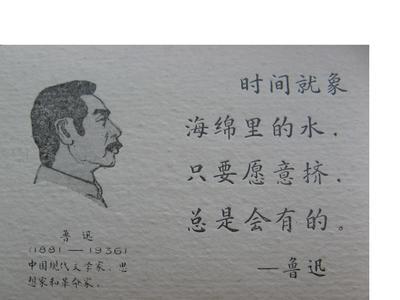 时间就象
海绵里的水，
只要愿意挤，
总是会有的。
—鲁迅
鲁迅
(1881—1936)
中国现代文学家、思
想家和革命家。